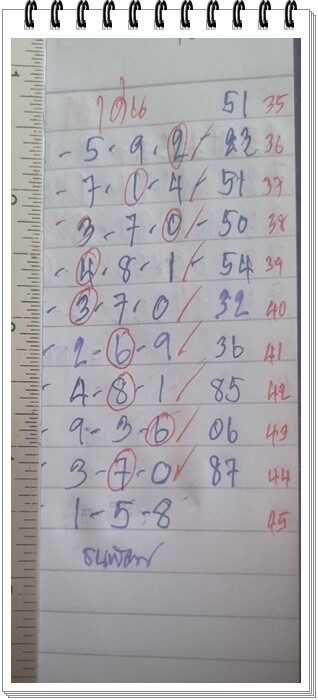 เด่น 51 35
- 5 - 9 - 2 / 22 36
- 7 - 1 - 4 / 51 37
- 3 - 7 - 0 / 50 38
- 4 - 8 - 1 / 54 39
- 3 - 7 - 0 / 32 40
- 2 - 6 - 9 / 36 41
- 4 - 8 - 1 / 85 42
- 9 - 3 - 6 / 06 43
- 3 - 7 - 0 / 87 44
1 - 5 - 8 45